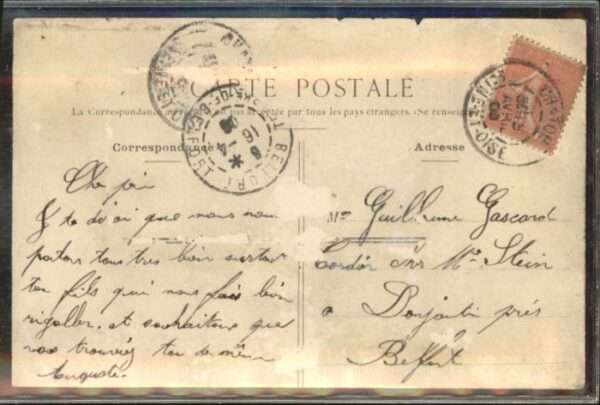 CARTE POSTALE
La Correspondance au recto n'est pas acceptée par tous les pays étrangers. (Se renseigner
Correspondance
Adresse
CHATOU
SEINE-ET-OISE
BELFORT
16
6 4
Cher
Je te dirai que nous nous
portons tous très bien surtout
ton fils qui nous fais bien
rigoller et souhaitons que
vous trouviez tou de même
Auguste
Mr Guillaume Gascard
chez Mr Stein
à Danjoutin près
Belfort